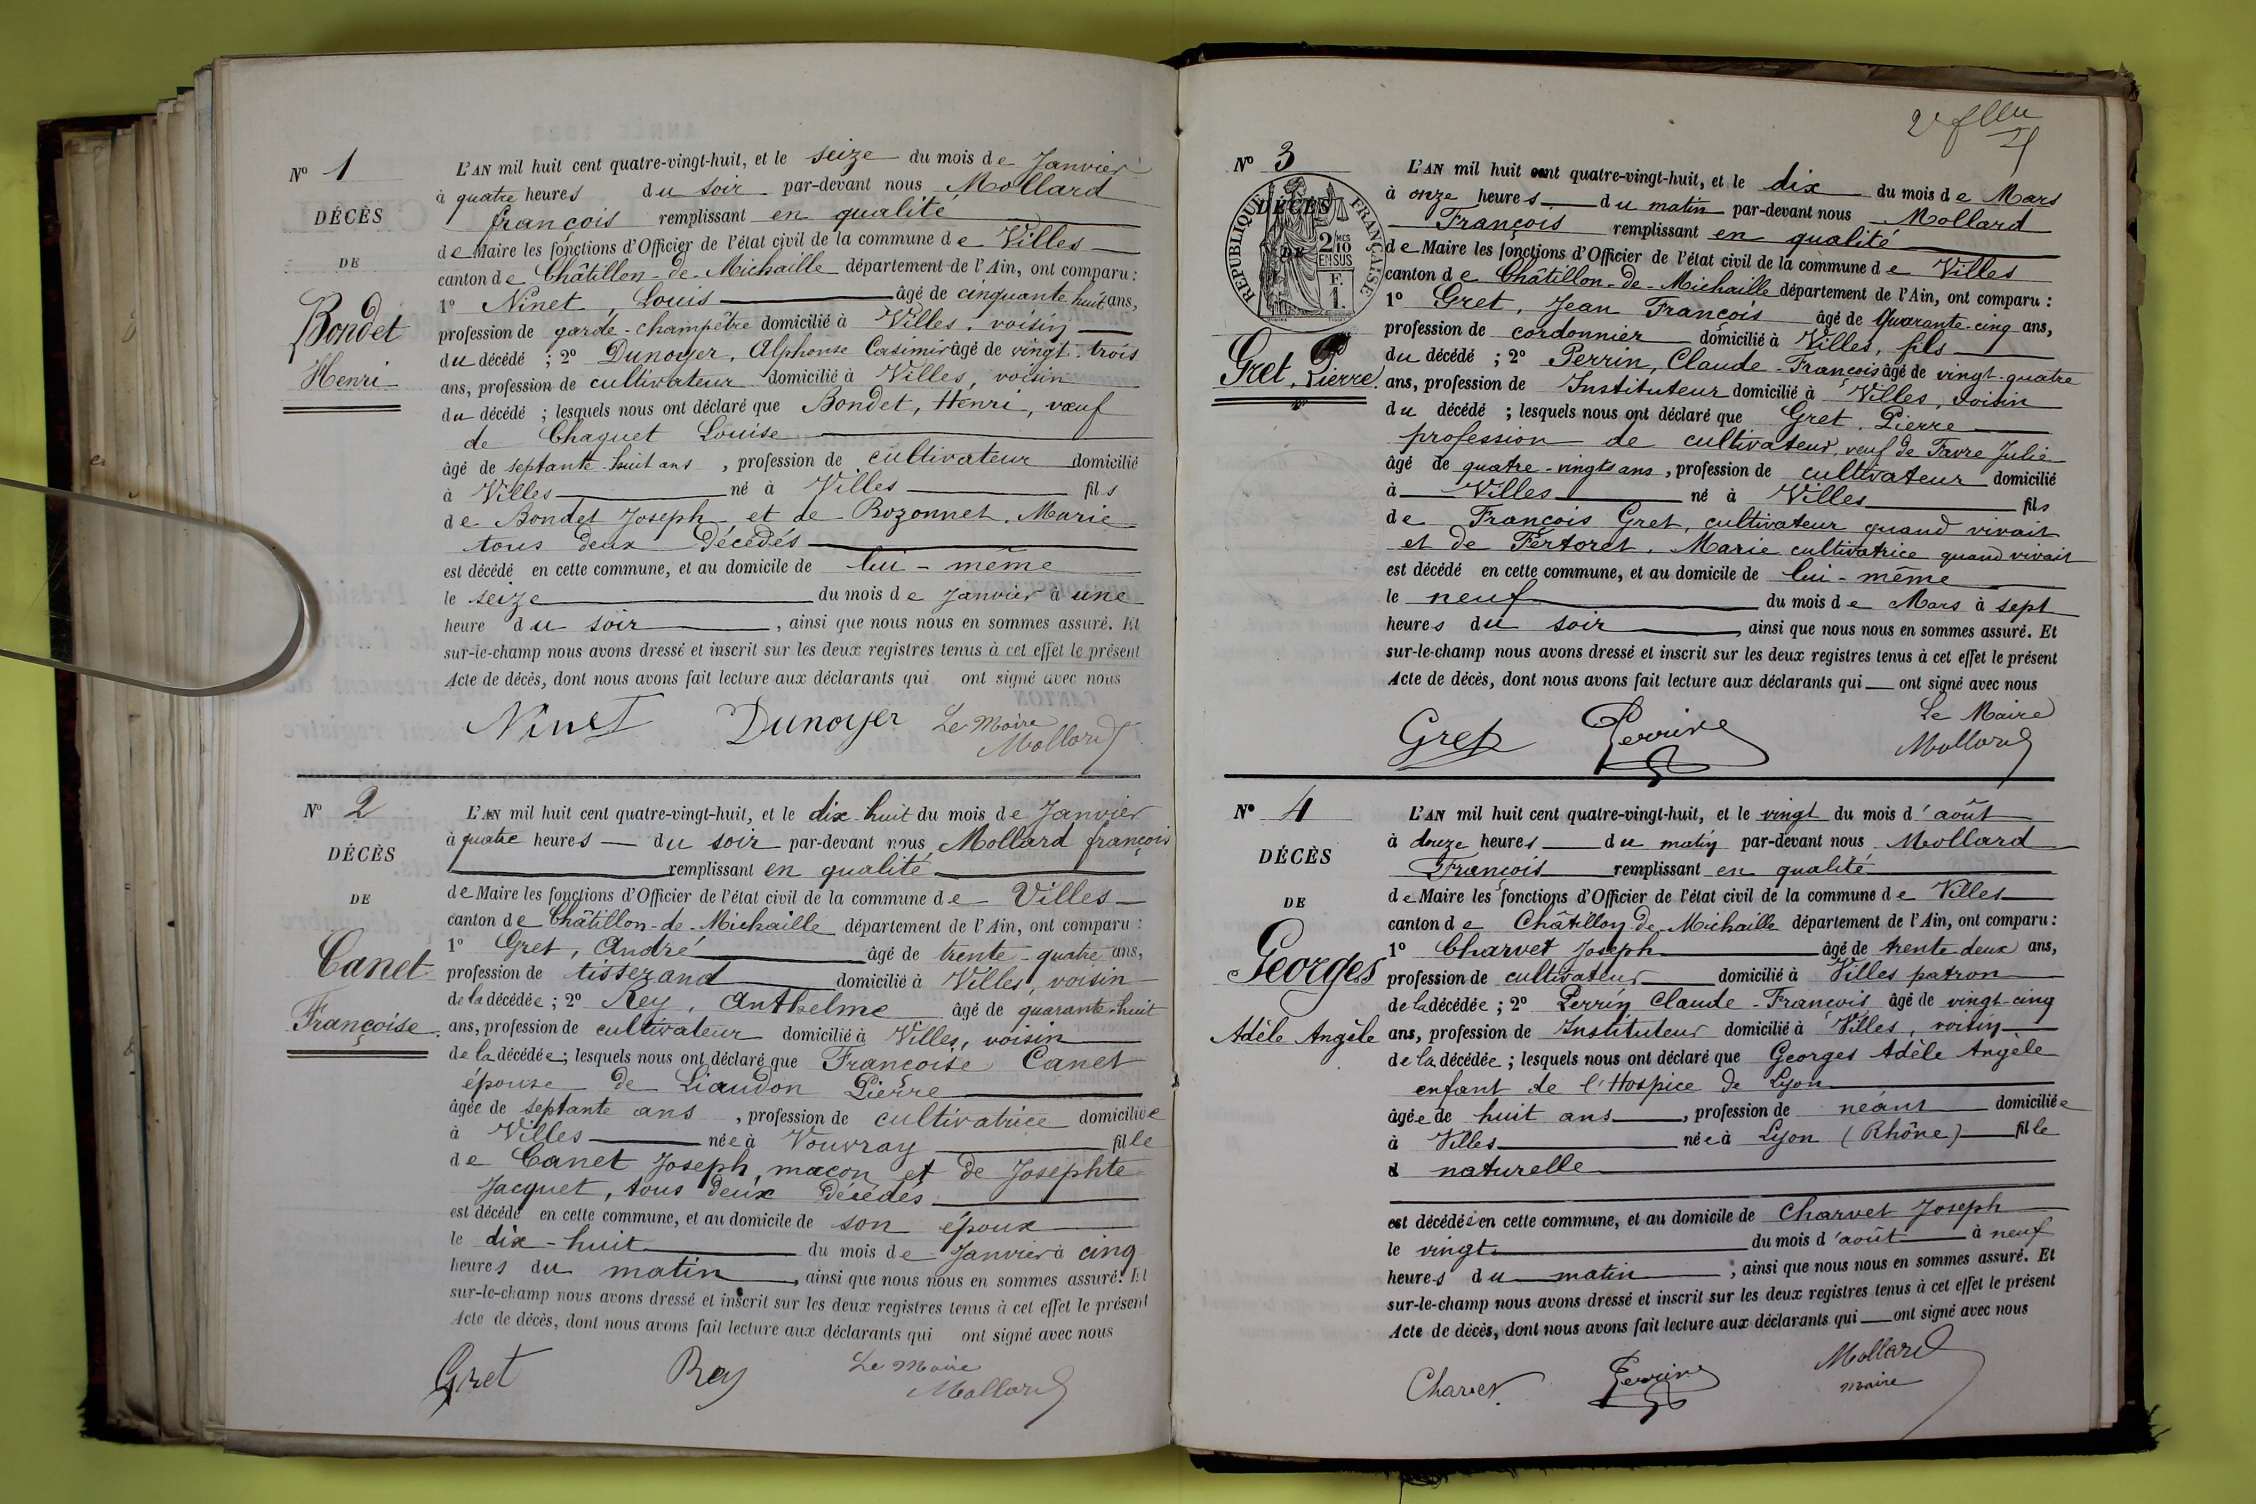 N° 1
DÉCÈS
DE
Bondet
Henri
L'AN mil huit cent quatre-vingt-huit, et le seize du mois de Janvier
à quatre heures du soir par-devant nous Mollard
françois remplissant en qualité
de Maire les fonctions d'Officier de l'état civil de la commune de Villes
canton de Châtillon-de-Michaille département de l'Ain, ont comparu :
1° Ninet, Louis âgé de cinquante huit ans,
profession de garde-champêtre domicilié à Villes, voisin
du décédé ; 2° Dunoyer, Alphonse Casimir âgé de vingt-trois
ans, profession de cultivateur domicilié à Villes, voisin
du décédé ; lesquels nous ont déclaré que Bondet, Henri, vœuf
de Chaguet Louise
âgé de septante-huit ans, profession de cultivateur domicilié
à Villes né à Villes fils
de Bondet Joseph et de Bozonnet, Marie
tous deux décédés
est décédé en cette commune, et au domicile de lui-même
le seize du mois de Janvier à une
heure du soir, ainsi que nous nous en sommes assuré. Et
sur-le-champ nous avons dressé et inscrit sur les deux registres tenus à cet effet le présent
Acte de décès, dont nous avons fait lecture aux déclarants qui ont signé avec nous
Ninet Dunoyer Le Maire
Mollard
N° 2
DÉCÈS
DE
Canet
Françoise.
L'AN mil huit cent quatre-vingt-huit, et le dix-huit du mois de Janvier
à quatre heures du soir par-devant nous Mollard françois
remplissant en qualité
de Maire les fonctions d'Officier de l'état civil de la commune de Villes
canton de Châtillon-de-Michaille département de l'Ain, ont comparu :
1° Gret, André âgé de trente-quatre ans,
profession de tisserand domicilié à Villes, voisin
de la décédée ; 2° Rey, Anthelme âgé de quarante-huit
ans, profession de cultivateur domicilié à Villes, voisin
de la décédée ; lesquels nous ont déclaré que Françoise Canet
épouse de Liaudon Pierre
âgée de septante ans, profession de cultivatrice domiciliée
à Villes née à Vouvray fille
de Canet Joseph, maçon et de Josephte
Jacquet, tous deux décédés
est décédé en cette commune, et au domicile de son époux
le dix-huit du mois de Janvier à cinq
heures du matin, ainsi que nous nous en sommes assuré. Et
sur-le-champ nous avons dressé et inscrit sur les deux registres tenus à cet effet le présent
Acte de décès, dont nous avons fait lecture aux déclarants qui ont signé avec nous
Gret Rey Le Maire
Mollard
N° 3
DÉCÈS
DE
RÉPUBLIQUE FRANÇAISE
2/10 EN SUS
F.
1.
Gret, Pierre.
L'AN mil huit cent quatre-vingt-huit, et le dix du mois de Mars
à onze heures du matin par-devant nous Mollard
François remplissant en qualité
de Maire les fonctions d'Officier de l'état civil de la commune de Villes
canton de Châtillon-de-Michaille département de l'Ain, ont comparu :
1° Gret, Jean François âgé de Quarante-cinq ans,
profession de cordonnier domicilié à Villes, fils
du décédé ; 2° Perrin, Claude-François âgé de vingt-quatre
ans, profession de Instituteur domicilié à Villes, voisin
du décédé ; lesquels nous ont déclaré que Gret, Pierre
profession de cultivateur, veuf de Favre Julie
âgé de quatre-vingts ans, profession de cultivateur domicilié
à Villes né à Villes fils
de François Gret, cultivateur quand vivait
et de Fertoret, Marie cultivatrice quand vivait
est décédé en cette commune, et au domicile de lui-même
le neuf du mois de Mars à sept
heures du soir, ainsi que nous nous en sommes assuré. Et
sur-le-champ nous avons dressé et inscrit sur les deux registres tenus à cet effet le présent
Acte de décès, dont nous avons fait lecture aux déclarants qui ont signé avec nous
Gret Perrin Le Maire
Mollard
N° 4
DÉCÈS
DE
Georges
Adèle Angèle
L'AN mil huit cent quatre-vingt-huit, et le vingt du mois d'août
à douze heures du matin par-devant nous Mollard
François remplissant en qualité
de Maire les fonctions d'Officier de l'état civil de la commune de Villes
canton de Châtillon de Michaille département de l'Ain, ont comparu :
1° Charvet Joseph âgé de trente deux ans,
profession de cultivateur domicilié à Villes patron
de la décédée ; 2° Perrin Claude-François âgé de vingt-cinq
ans, profession de Instituteur domicilié à Villes, voisin
de la décédée ; lesquels nous ont déclaré que Georges Adèle Angèle
enfant de l'Hospice de Lyon
âgée de huit ans, profession de néant domiciliée
à Villes née à Lyon (Rhône) fille
d naturelle
est décédée en cette commune, et au domicile de Charvet Joseph
le vingt du mois d'août à neuf
heures du matin, ainsi que nous nous en sommes assuré. Et
sur-le-champ nous avons dressé et inscrit sur les deux registres tenus à cet effet le présent
Acte de décès, dont nous avons fait lecture aux déclarants qui ont signé avec nous
Charvet Perrin Mollard
maire